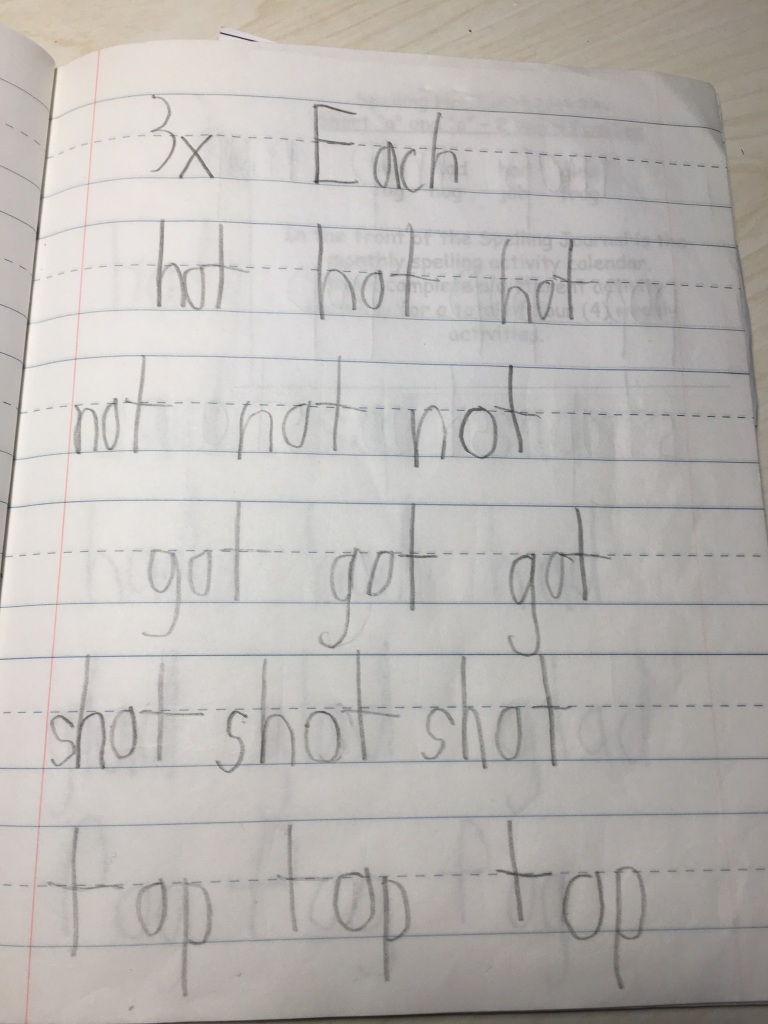 3x Each
hot hot hot
not not not
got got got
shot shot shot
top top top